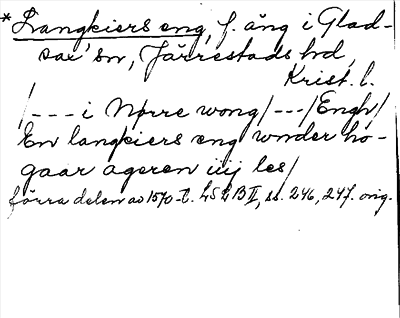 * Langkiers eng, f. äng i Glad-
sax' sn, Järrestads hd,
Krist. l.
/--- i Nørre wong/---/Engh/
En langkiers eng wnder ho-
gaar ageren iiij les/
förra delen av 1570-t. LSLB II, ss. 246, 247. orig.